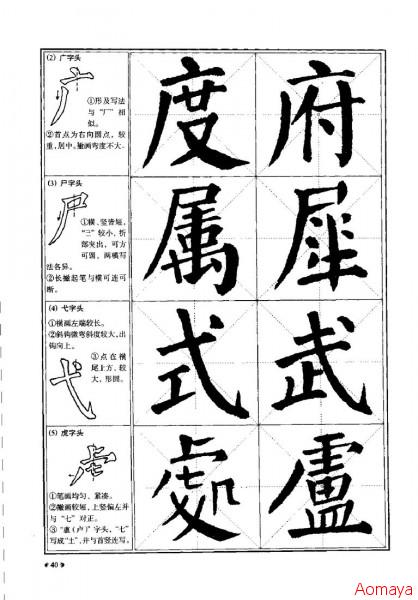 (2) 广字头
广
①形及写法
与“厂”相
似。
②首点为右向圆点，较
重，居中。撇画弯度不大。
度 府
(3) 尸字头
尸
①横、竖皆短，
“コ”较小，折
部突出，可方
可圆，两横写
法各异。
②长撇起笔与横可连可
断。
属 犀
(4) 弋字头
①横画左端较长。
②斜钩微弯斜度较大，出
钩向上。
③点在横
尾上方，较
大，形圆。
弋
式 武
(5) 虎字头
虍
①笔画均匀、紧凑。
②撇画较短，上竖偏左并
与“七”对正。
③“盧（卢）”字头，“七”
写成“土”，并与首竖连写。
處 盧
40
Aomaya